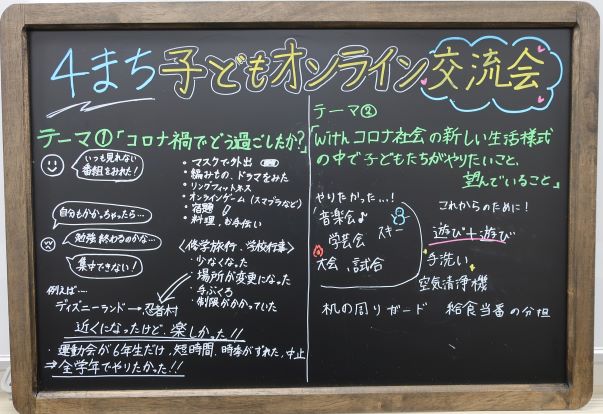 4まち子どもオンライン交流会
テーマ①「コロナ禍でどう過ごしたか?」
いつも見れない
番組をみれた!
・マスクで外出
・編みもの、ドラマをみた
・リングフィットネス
・オンラインゲーム(スマブラなど)
・宿題
・料理、お手伝い
自分もかかっちゃったら…
勉強終わるのかな…
集中できない!
〈修学旅行、学校行事〉
・少なくなった
・場所が変更になった
・手ぶくろ
・制限がかかっていた
例えば…
ディズニーランド→忍者村
近くになったけど、楽しかった!!
・運動会が6年生だけ、短時間、時季がずれた、中止
⇒全学年でやりたかった!!
テーマ②
「withコロナ社会の新しい生活様式
の中で子どもたちがやりたいこと、
望んでいること」
やりたかった…!
音楽会♪
学芸会 スキー
大会、試合
これからのために!
遊び+遊び
手洗い
空気清浄機
机の周りガード 給食当番の分担